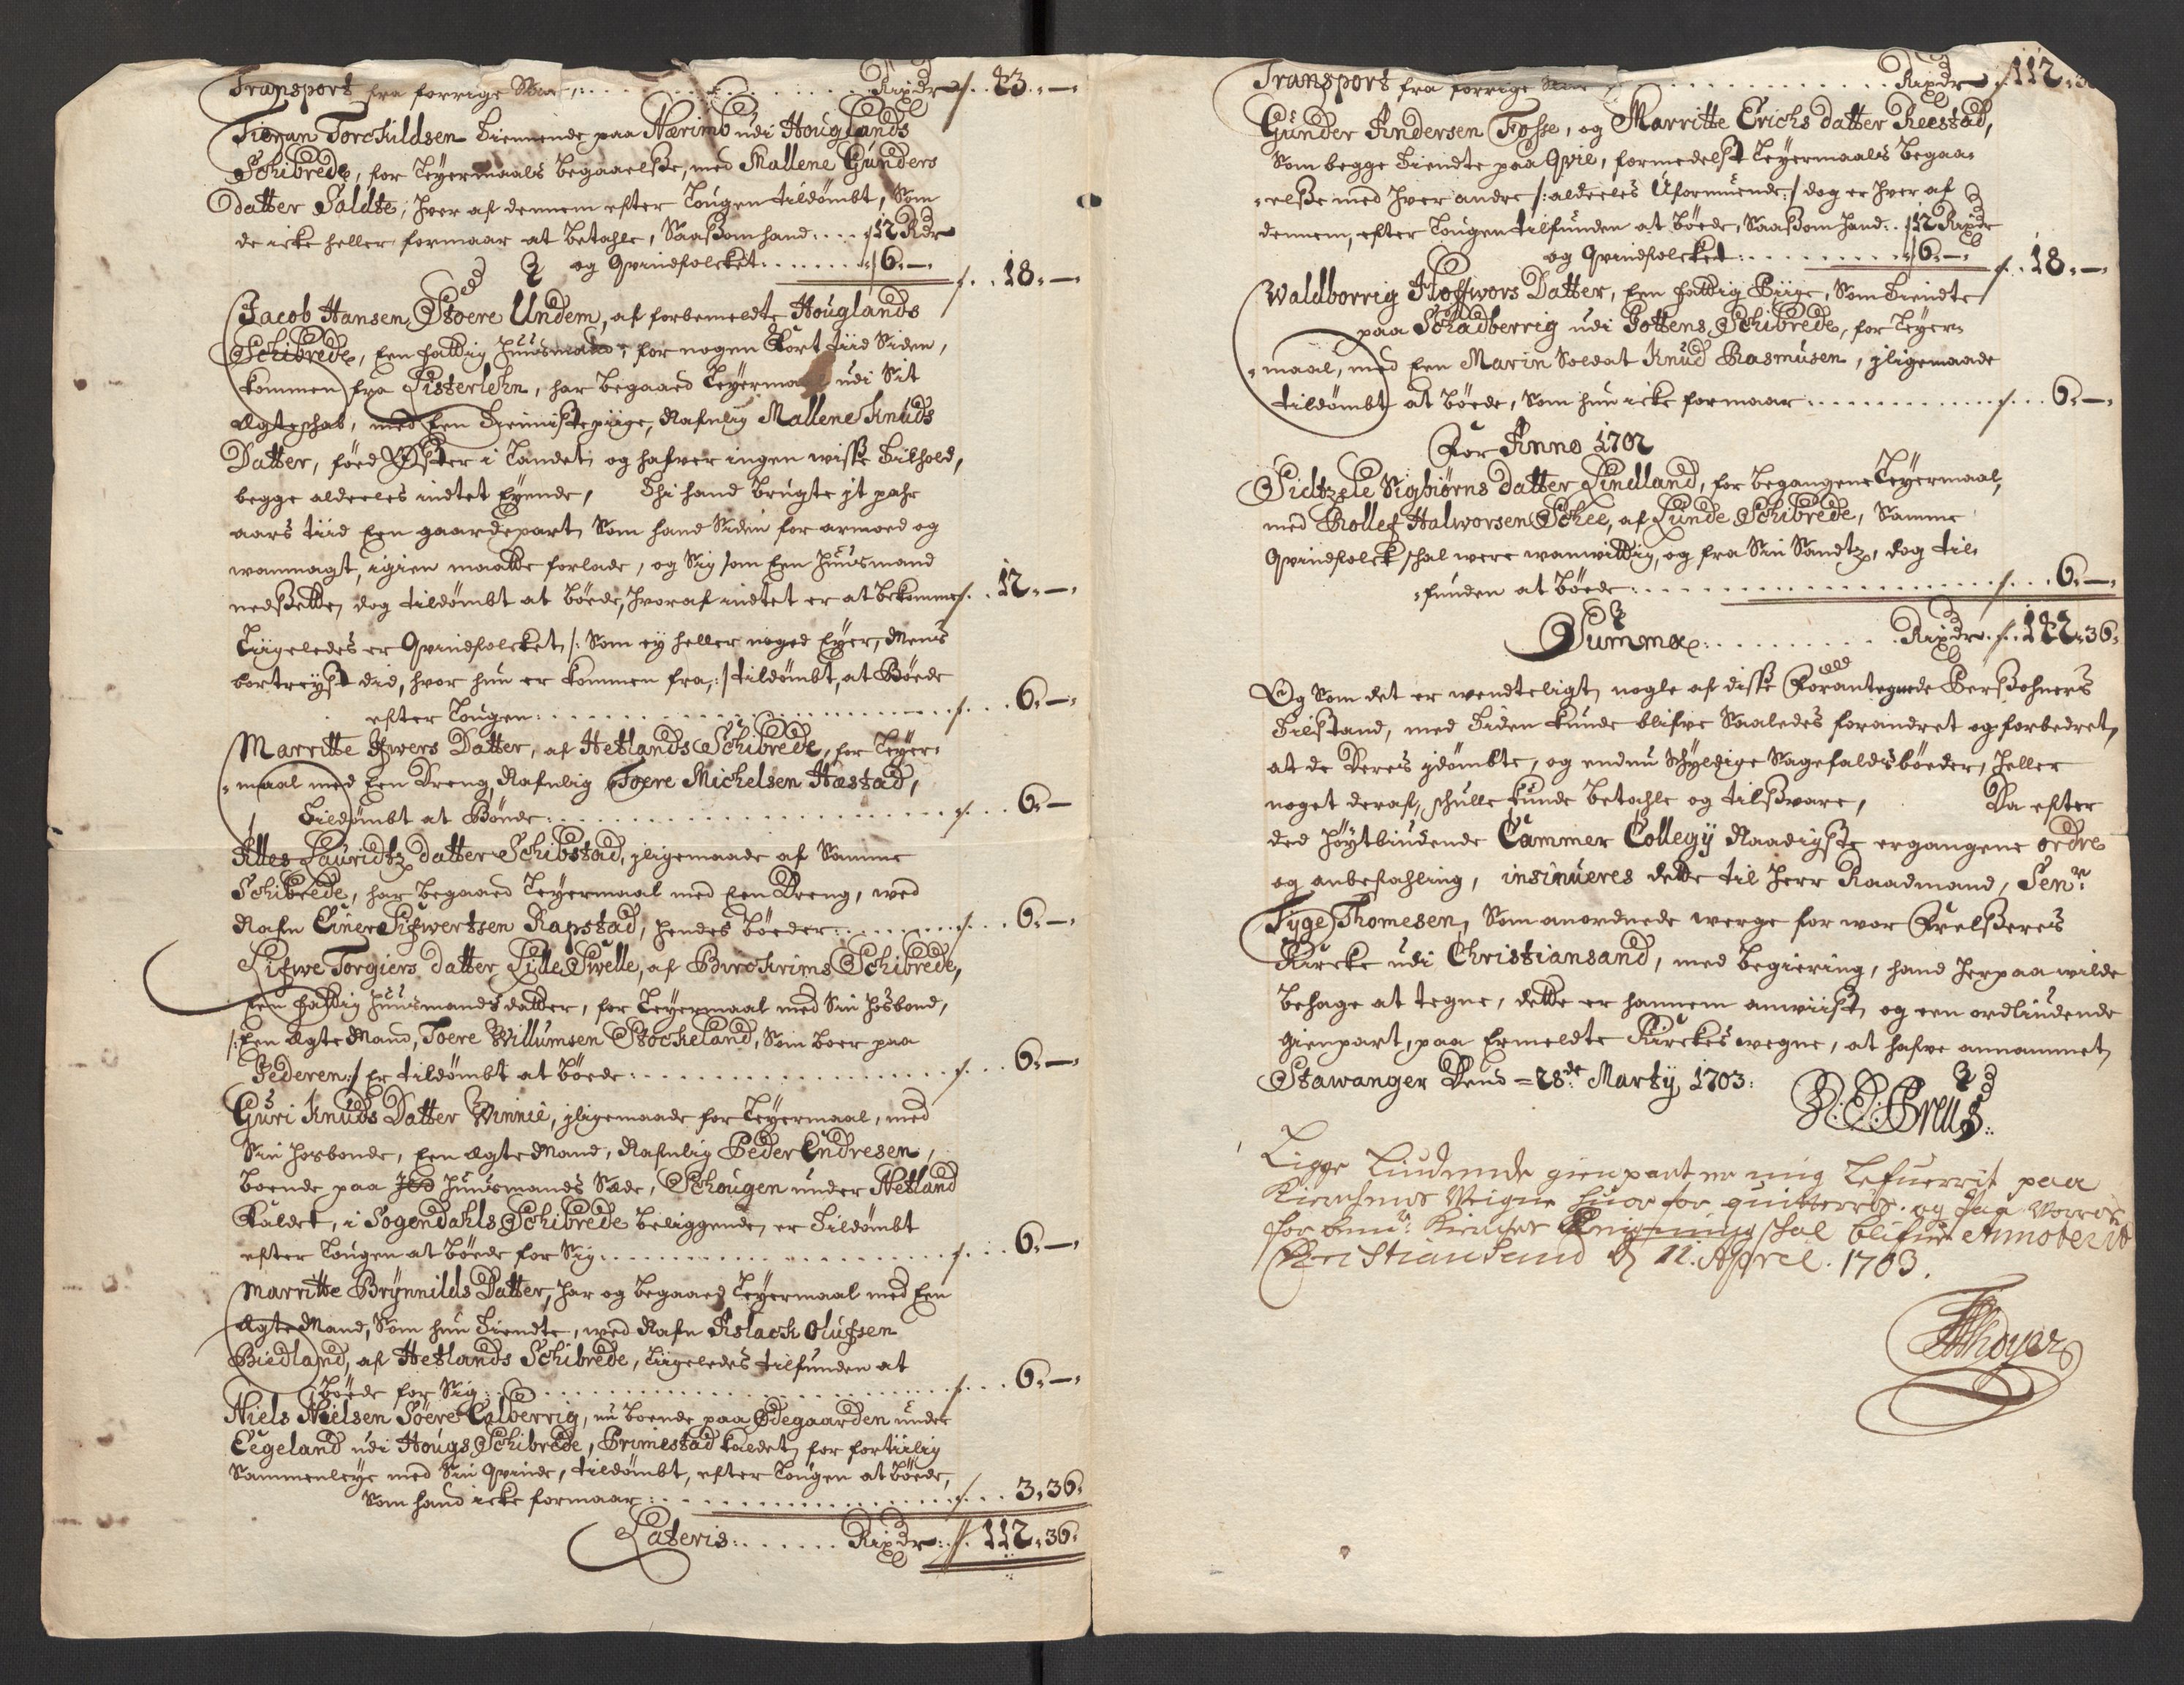 Transport fra forrige Side :. . . . . . . . . Rixdr /. 43 „ — „
Tieran Torchildsen tiennende paa Nærimb udi Houglands
Schibrede, for Leyermaals begaaelsse, med Mallene Gunders
datter Saldte, hver af dennem efter Lougen tildømbt, Som
de icke heller formaar at betahle, Saasom hand: . . . /12 Rdr
og Qvindfolcket. . . . . . . „/6 „ — „ /. . 18 „ — „
Jacob Hansen, Stoere Undem, af forbemeldte Houglands
Schibrede, Een fattig Huusmand, for nogen kort tiid Siden,
kommen fra Listerlehn, har begaaed Leyermaal udi Sit
Ægteschab, med Een tienniste piige, Nafnlig Mallene Knuds
Datter, föed Øster i Landet, og hafver ingen wisse tilhold,
begge aldeeles indtet Eyende, Thi hand brugte jt pahr
aars tiid Een gaardepart, Som hand Siden for armoed og
wanmagt, igien maatte forlade, og Sig som Een Huusmand
nedsette, dog tildömbt at böede, hvoraf indtet er at bekomme /. . 12 „ — „
Liigeledes er Qvindfolcket /: Som ey heller noged Eyer, Mens
bortreyst did, hvor hun er kommen fra, :/ tildömbt, at Böede
efter Lougen: . . . . . . . . . . . . . . /. . . 6 „ — „
Marritte Ifwers Datter, af Hetlands Schibrede, for Leyer„
„maal med Een Dreng, Nafnlig Toere Michelsen Hæstad,
Tildömbt at Böede: . . . . . . . . . . . . . /. . . 6 „ —
Alles Lauridtz datter Schibstad, jligemaade af Samme
Schibrede, har begaaed Leyermaal med Een Dreng, wed
Nafn Einer Sifwertsen Rapstad, hendes böeder: . . . . . . /. . . 6 „ — „
Lifwe Torgiers datter Lille Swelle, af Birckrims Schibrede,
Een fattig Huusmands datter, for Leyermaal med Sin Hosbond,
/: Een Ægte Mand, Toere Willumsen Stockeland, Som boer paa
Jederen :/ Er tildömbt at böede: . . . . . . . . . . . /. . . 6 „ — „
Guri Knuds Datter Winnie, jligemaade for Leyermaal, med
Sin Hosbonde, Een Ægte Mand, Nafnlig Peder Endresen,
boende paa Jtt Huusmands Sæde, Schougen under Netland
Kaldet, i Sogendahls Schibrede beliggende, er Tildömbt
efter Lougen at böede for Sig: . . . . . . . . . . . . /. . . 6 „ — „
Marritte Brynnilds Datter, har og begaaed Leyermaal med Een
Ægte Mand, Som hun tiendte, wed Nafn Aslach Olufsen
Birdland, af Hetlands Schibrede, Liigeledes tilfunden at
böede for Sig: . . . . . . . . . . . . . . . . /. . . 6 „ — „
Niels Nielsen Söere Calberrig, nu boende paa Ødegaarden under
Eegeland udi Hougs Schibrede, Primestad kaldet, for fortiilig
Sammenleye med Sin Qvinde, tildömbt, efter Lougen at böede,
Som hand icke formaar: . . . . . . . . . . . . /. . . 3 „ 36 „
Lateris: . . . . . . Rixdr: /. 112 „ 36 „
Transport fra forrige Side . . . . . . . . . . . Rixdr /. 112 „ 36
Gunder Andersen Fosse, og Marritte Erichs datter Reestad,
Som begge tiendte paa Qvie, formedelst Leyermaals begaa„
„elsse med hver andre /: aldeeles Uformuende :/ dog er hver af
dennem, efter Lougen tilfunden at böede, Saasom hand: . /12 Rixdr
og Qvindfolcked: . . . . . . . . . „/6 „ — „ /. . 18 „ — „
Waldborrig Aloffwors Datter, Een fattig Piige, Som tiendte
paa Schadberrig udi Jottens Schibrede, for Leyer„
„maal, med Een Marin Soldat Knud Rasmusen, jligemaade
tildömbt at böede, Som hun icke formaar: . . . . . . . . /. . . 6 „ — „
For Anno 1702
Sidtzele Sigbiörns datter Lindland, for begangene Leyermaal,
med Rollef Halworsen Schee, af Lunde Schibrede, Samme
Qvindfolck schal were wanwittig, og fra Sin Sandtz, dog til„
„funden at böede: . . . . . . . . . . . . . . /. . . 6 „ — „
Summa: . . . . . . . . . Rixdr /. 142 „ 36 „
Og Som det er wendteligt, nogle af disse Forantegnede Persohners
Tilstand, med tiden kunde blifve Saaledes forandret og forbedret,
at de Deres jdömbte, og endnu schyldige Sagefaldsböeder, heller
noget deraf, schulle kunde betahle og tilsvare, Da efter
ded Höytbiudende Cammer Collegij Naadigste ergangene ordre
og anbefahling, insinueres dette til Herr Raadmand, Senr
Tyge Thomesen, Som anordnede werge for wor Frelseres
Kircke udi Christiansand, med begiering, hand herpaa wilde
behage at tegne, dette er hannem anwiist, og een ordliudende
gienpart, paa Ermeldte Kirckes wegne, at hafve annammet,
Stawanger Dend = 28de Martij 1703:
Lige Liudende gienpart er mig lefuerrit paa
Kierchens Weigne huor for quitteris. og paa
Kirches schal blifue Annoterit
Christiansand d 11. Aprel. 1703.